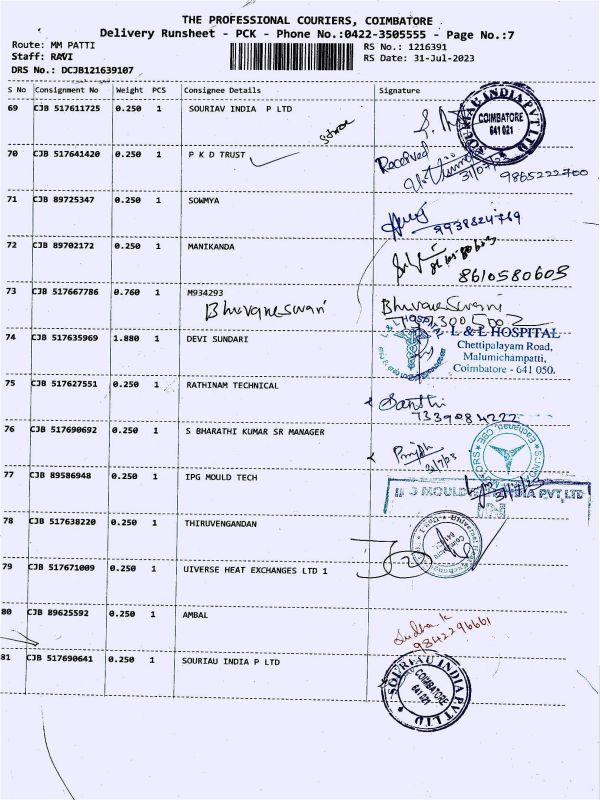 THE PROFESSIONAL COURIERS, COIMBATORE
Delivery Runsheet - PCK - Phone No.:0422-3505555 - Page No.:7
Route: MM PATTI
RS No.: 1216391
Staff: RAVI
RS Date: 31-Jul-2023
DRS No.: DCJB121639107
S No Consignment No Weight PCS Consignee Details Signature
69 CJB 517611725 0.250 1 SOURIAV INDIA P LTD
SOURIAU INDIA PVT LTD COIMBATORE 641 021
70 CJB 517641420 0.250 1 P K D TRUST
Received
31/07/23 9865222700
71 CJB 89725347 0.250 1 SOWMYA
9938824769
72 CJB 89702172 0.250 1 MANIKANDA
8610580603
8610580603
73 CJB 517667786 0.760 1 M934293
Bhuvaneswari Bhuvaneswari
74 CJB 517635969 1.880 1 DEVI SUNDARI
L & L HOSPITAL
L & L HOSPITAL
Chettipalayam Road,
Malumichampatti,
Coimbatore - 641 050.
75 CJB 517627551 0.250 1 RATHINAM TECHNICAL
Santhi
7339084222
76 CJB 517690692 0.250 1 S BHARATHI KUMAR SR MANAGER
31/7/23
77 CJB 89586948 0.250 1 IPG MOULD TECH
MOULD INDIA PVT LTD
78 CJB 517638220 0.250 1 THIRUVENGANDAN
79 CJB 517671009 0.250 1 UIVERSE HEAT EXCHANGES LTD 1
80 CJB 89625592 0.250 1 AMBAL
Sudha k
9842296661
81 CJB 517690641 0.250 1 SOURIAU INDIA P LTD
SOURIAU INDIA PVT LTD COIMBATORE 641 021